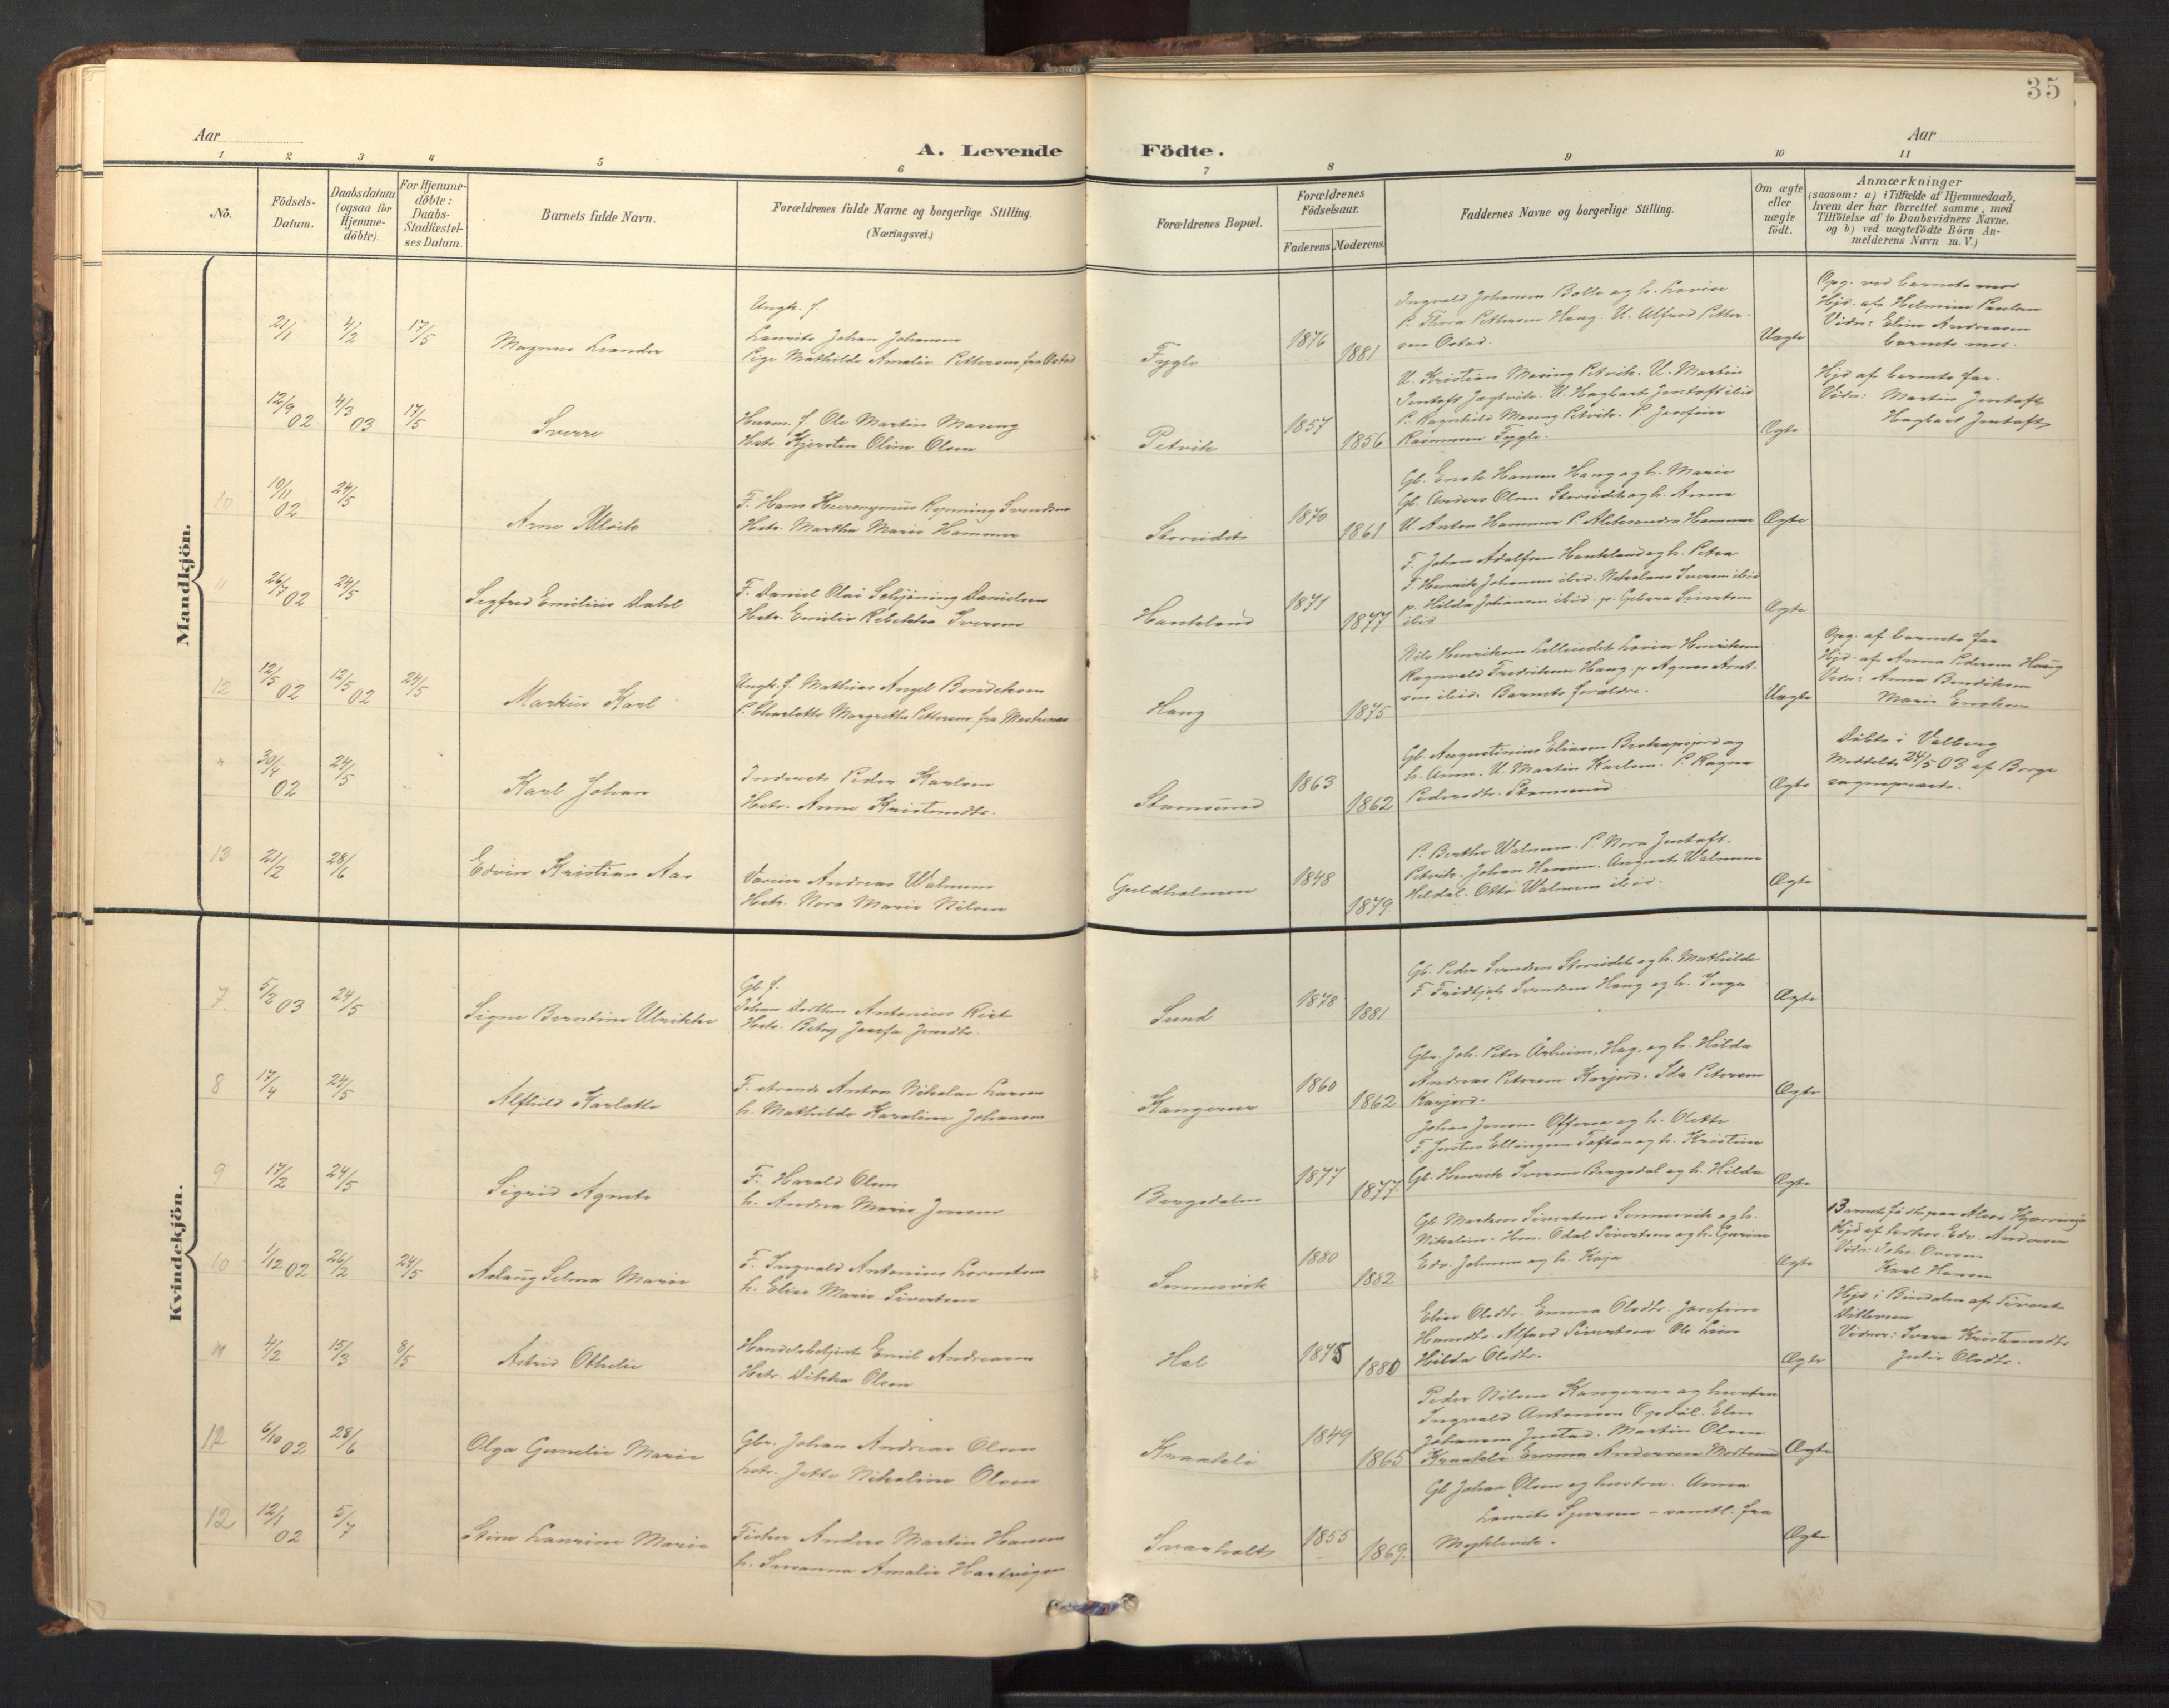 35
Aar
A. Levende Födte.
Aar
1 2 3 4 5 6 7 8 9 10 11
No.
Födsels-
Datum.
Daabsdatum
(ogsaa för
Hjemme-
döbte).
For Hjemme-
döbte:
Daabs-
Stadfæstel-
ses Datum.
Barnets fulde Navn.
Forældrenes fulde Navne og borgerlige Stilling.
(Næringsvei.)
Forældrenes Bopæl.
Forældrenes
Födselsaar.
Faderens Moderens
Faddernes Navne og borgerlige Stilling.
Om ægte
eller
uægte
födt.
Anmærkninger
(saasom: a) i Tilfælde af Hjemmedaab,
hvem der har forrettet samme, med
Tilföielse af to Daabsvidners Navne.
og b) ved uægtefödte Börn An-
melderens Navn m. V.)
Mandkjön.
21/1
4/2
17/5
Magnus Leander
Ungk. f.
Laurits Johan Johansen
Pige Mathilde Amalie Pettersen fra Ostad
Fygle
1876
1881
Ingvald Johansen Bolle og h. Lovise
P. Thora Pettersen Haug. U. Alfred Petter-
sen Ostad.
Uægte
Opg. ved barnets mor
Hjd. af Helmine Paulsen
Vidn: Eline Andreasen
barnets mor.
12/9 02
4/3 03
17/5
Sverre
Husm. f. Ole Martin Moseng
Hstr. Kjersten Oline Olsen
Petvik
1857
1856
U. Kristian Moseng Petvik. U. Martin
Jentoft Jægtvik. U. Hagbart Jentoft ibid
P. Ragnhild Moseng Petvik. P. Josefine
Rasmussen Fygle.
Ægte
Hjd af barnets far.
Vidn: Martin Jentoft
Hagbart Jentoft
10
10/11 02
24/5
Arne
F. Hans Hieronymus Rynning Svendsen
Hstr. Martha Marie Hammer
Storeidet
1870
1861
Gb. Enok Hansen Haug og h. Marie
Gb. Anders Olsen Storeidet og h. Anna
U. Anton Hammer P. Aleksandra Hammer
Ægte
11
26/7 02
24/5
Sigfred Emilius Dahl
F. Daniel Olai Schjöning Danielsen
Hstr. Emilie Rebekka Iversen
Haukeland
1871
1877
F. Johan Adolfsen Haukeland og h. Petra
F. Henrik Johansen ibid. Nikolaus Iversen ibid
p. Hilda Johansen ibid. p. Sivertsen
ibid
Ægte
12
12/5 02
12/5 02
24/5
Markus Karl
Ungk. f. Mathias Angel Bendiksen
P. Charlotte Margrethe Pettersen fra
Haug
1875
Nils Henriksen Lilleeidet Lovise Henriksen
Ragnvald Fredriksen Haug. p Agnes Arnt-
sen ibid. Barnets forældre.
Uægte
Opg. af barnets far
Hjd. af Anna Pedersen Haug
Vidn: Anna Bendiksen
Marie
"
30/4 02
24/5
Karl Johan
Inderst Peder Karlsen
Hstr. Anne Kristensdtr.
Stamsund
1863
1862
Gb. Augustinius Eliasen og
h. Anne. U. Martin Karlsen. P. Ragna
Pedersdtr. Stamsund
Ægte
Døbt i Valberg
Meddelt 24/5 03 af Borge
sogneprest.
13
21/2
28/6
Edvin Kristian Aas
Andreas Walnum
Hstr. Nora Marie Nilsen
Guldholmen
1848
1879.
P. Berthe Walnum. P. Nora Jentoft.
Petvik. Johan Hansen. August Walnum
Hildal. Otto Walnum ibid.
Ægte
Kvindekjön.
7
5/2 03
24/5
Signe Berntine Ulrikke
Gb. f.
Johan Antonius Rist
Hstr. Betsy Josefa
Sund
1878
1881
Gb. Peder Svendsen Storeidet og h. Mathilde
F. Fridtjof Svendsen Haug og h. Inga
Ægte
8
17/4
24/5
Alfhild Karlotte
F. strands Anton Nikolai Larsen
h. Mathilde Karoline Johansen
Kangerne
1860
1862
Gbr. Joh. Peter Hag. og h. Hilda
Andreas Petersen Karjord. Ida Petersen
Karjord.
Ægte
9
17/2
24/5
Sigrid Agnete
F. Harald Olsen
h. Andrea Marie Jensen
Bergsdalen
1877
1877.
Johan Jensen Offersø og h. Olette
F. Justus Ellingsen og h. Kristine
Gb. Henrik Iversen Bergsdal og h. Hilda
Ægte
10
1/12 02
26/2
24/5
Aslaug Selma Marie
F. Ingvald Antonius Lorentsen
h. Elise Marie Sivertsen
Sennesvik
1880
1882
Gb. Markus Sivertsen Sennesvik og h.
Nikoline. Hm. Odal Sivertsen og h. Gurine
Edv. Johnsen og h. Kaja
Ægte
Barnet født paa
Hjd af Edv. Andersen
Vidn: Johs.
Karl Hansen
11
4/2
15/3
8/5
Astrid Othelie
Handelsbetjent Emil Andreassen
Hstr. Dikka Olsen
Hol
1875
1880
Elise Olsdtr. Emma Olsdtr. Josefine
Hansdtr. Alfred Sivertsen Ole
Hilda Olsdtr.
Ægte
Hjd i Bindalen af Sivert
Ditlevsen
Vidner: Kristensdtr
Julie Olsdtr.
12
6/10 02
28/6
Olga Gunelie Marie
Gbr. Johan Andreas Olsen
hstr. Jette Nikoline Olsen
Kraakeli
1849
1865
Peder Nilsen Kangerne og hustru
Ingvald Antonsen Opdöl. Elen
Johansen Justad. Martin Olsen
Kraakeli. Emma Andersen
Ægte
12
12/1 02
5/7
Stine Laurine Marie
Fisker Anders Martin Hansen
h. Susanna Amalie Hartvigsen
Svarholt
1855
1869.
Gb Johan Olsen og hustru Anna
Laurits – samtl. fra
Ægte